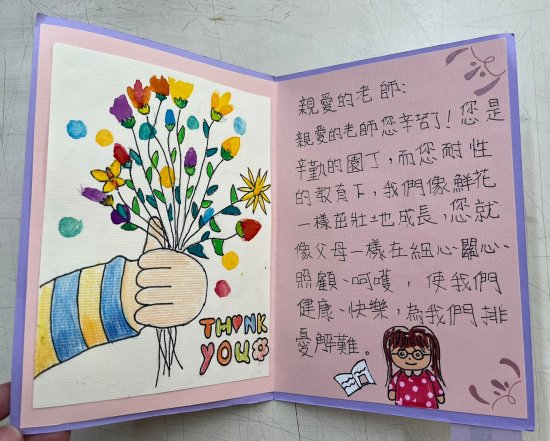 THANK
YOU
親愛的老師:
親愛的老師您辛苦了!您是
辛勤的園丁,而您耐性
的教育下,我們像鮮花
一樣茁壯地成長,您就
像父母一樣在細心、關心、
照顧、呵嚄,使我們
健康、快樂,為我們排
憂解難。